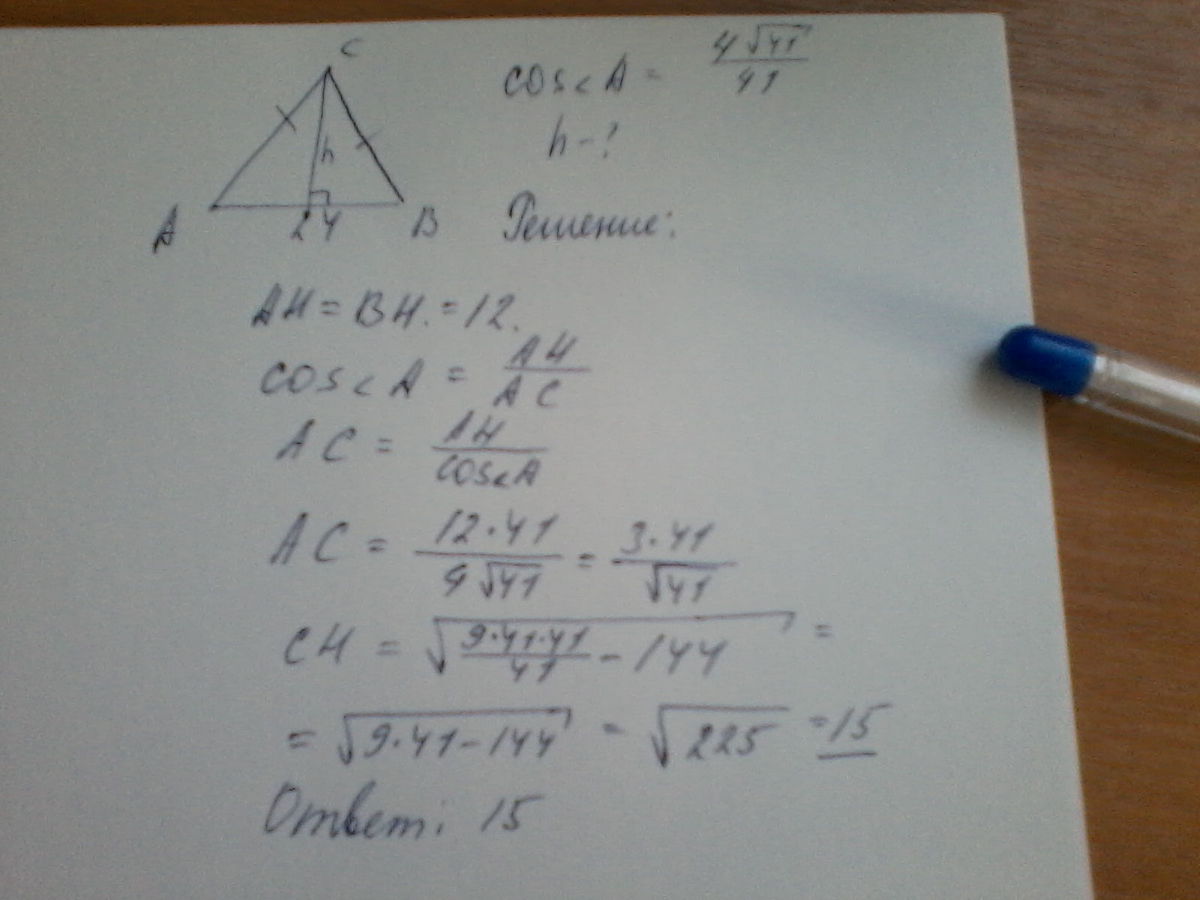 C
cos∠A = 4√41/41
h
h-?
A
24
B
Решение:
AH = BH. = 12.
cos∠A = AH/AC
AC = AH/cos∠A
AC = 12·41/4√41 = 3·41/√41
CH = √(9·41·41/41 - 144) =
= √(9·41-144) = √225 = 15
Ответ: 15